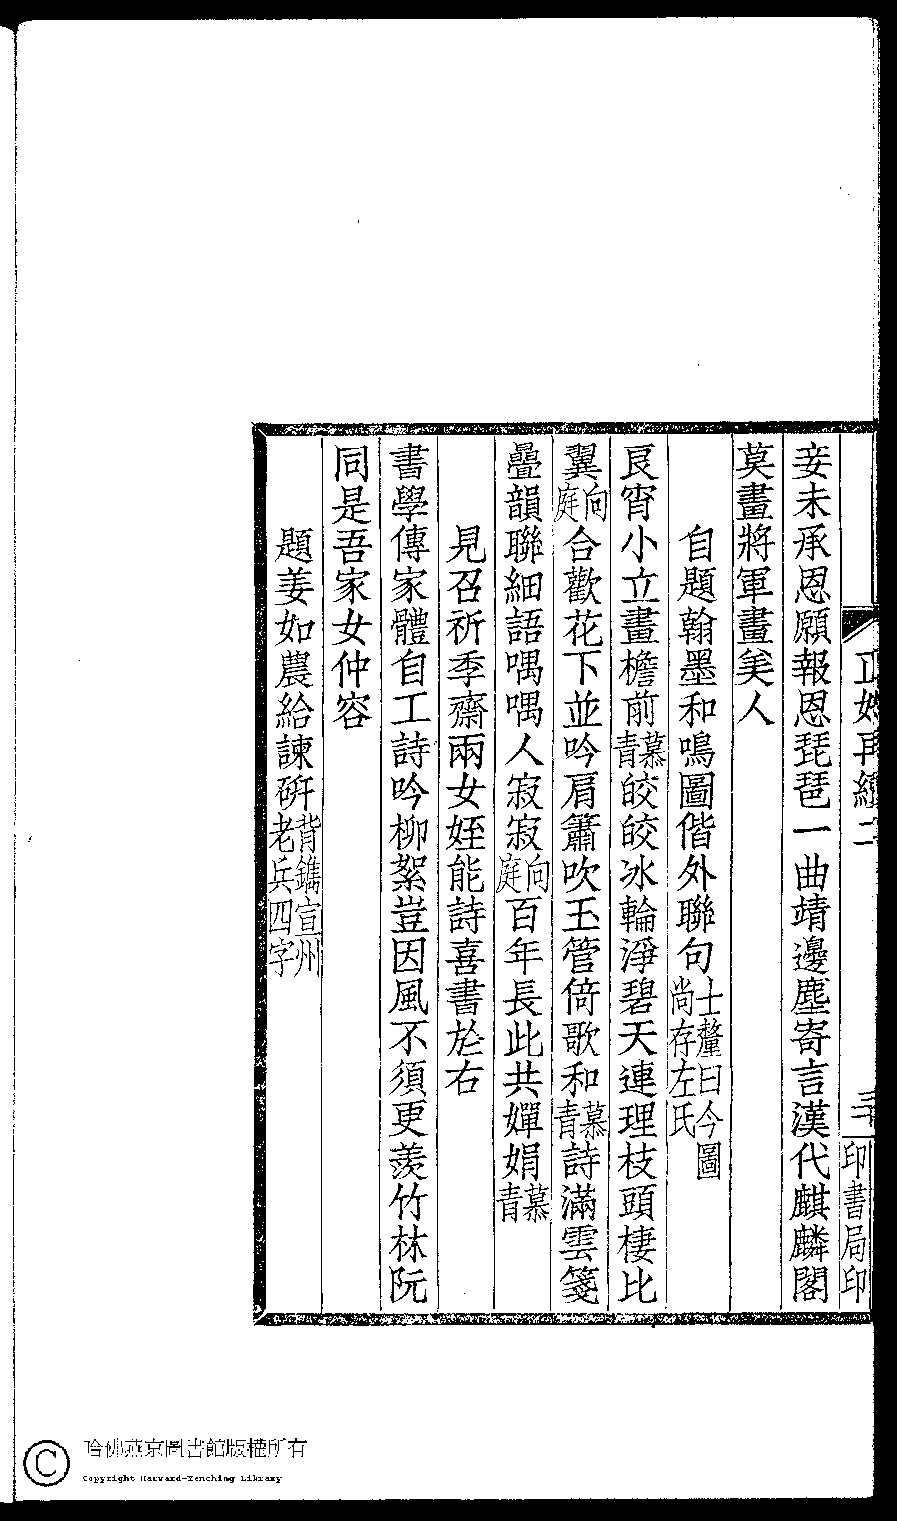 妾未承恩願報恩琵琶一曲靖邊塵寄言漢代麒麟閣
莫畫將軍畫美人
自題翰墨和鳴圖偕外聯句士釐曰今圖尚存左氏
良宵小立畫檐前慕青皎皎冰輪淨碧天連理枝頭棲比
翼向庭合歡花下並吟肩簫吹玉管倚歌和慕青詩滿雲箋
疊韻聯細語喁喁人寂寂向庭百年長此共嬋娟慕青
見召祈季齋兩女姪能詩喜書於右
書學傳家體自工詩吟柳絮豈因風不須更羨竹林阮
同是吾家女仲容
題姜如農給諫硏背鐫宣州老兵四字
再續二
三
印書局印
哈佛燕京圖書館版權所有
Copyright Harvard-Yenching Library